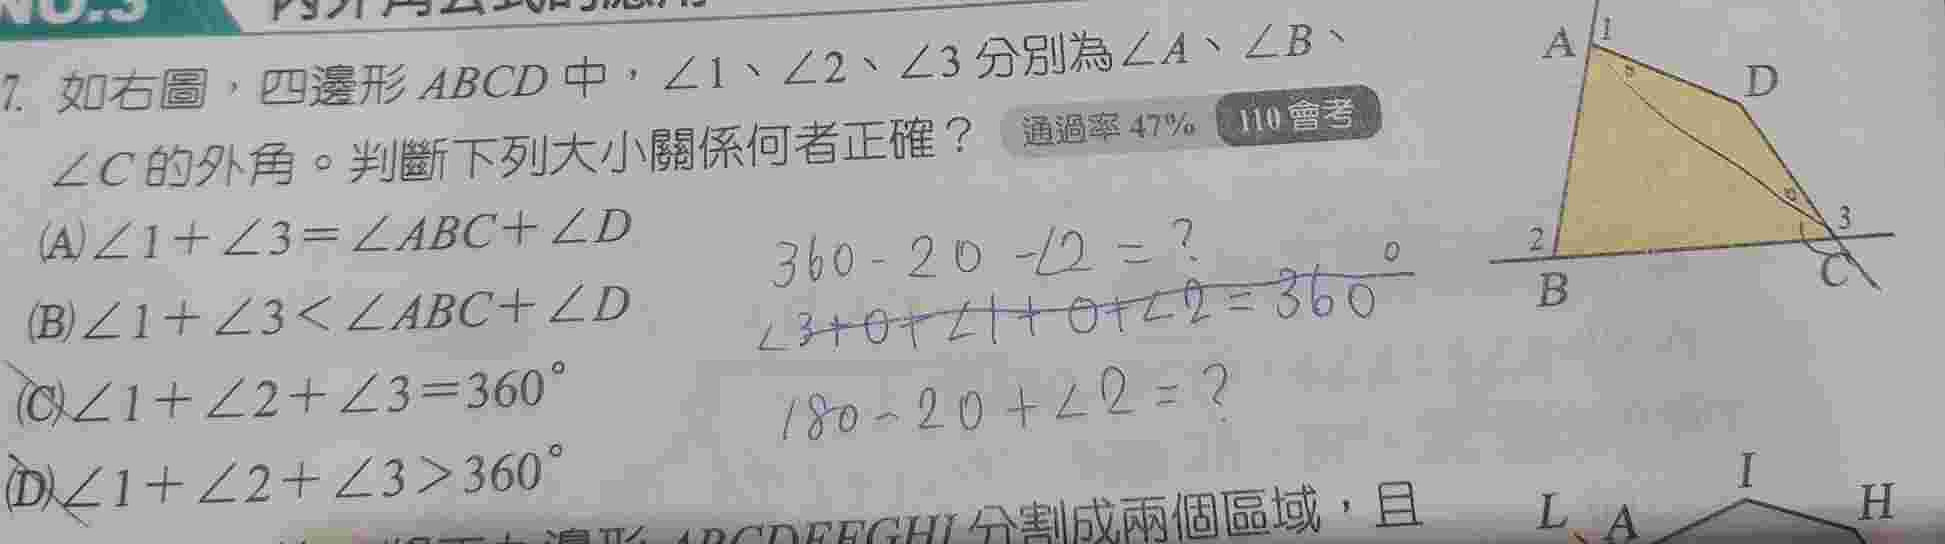 NO.3 內外角公式的應用
7. 如右圖，四邊形 ABCD 中，∠1、∠2、∠3 分別為∠A、∠B、
∠C 的外角。判斷下列大小關係何者正確？ 通過率 47% 110 會考
(A)∠1+∠3=∠ABC+∠D
(B)∠1+∠3<∠ABC+∠D
(C)∠1+∠2+∠3=360°
(D)∠1+∠2+∠3>360°
360-20-∠2=?
∠3+0+∠1+0+∠2=360°
180-20+∠2=?
A 1
D
2 3
B C
ABCDEFGHI 分割成兩個區域，且
I
L A H